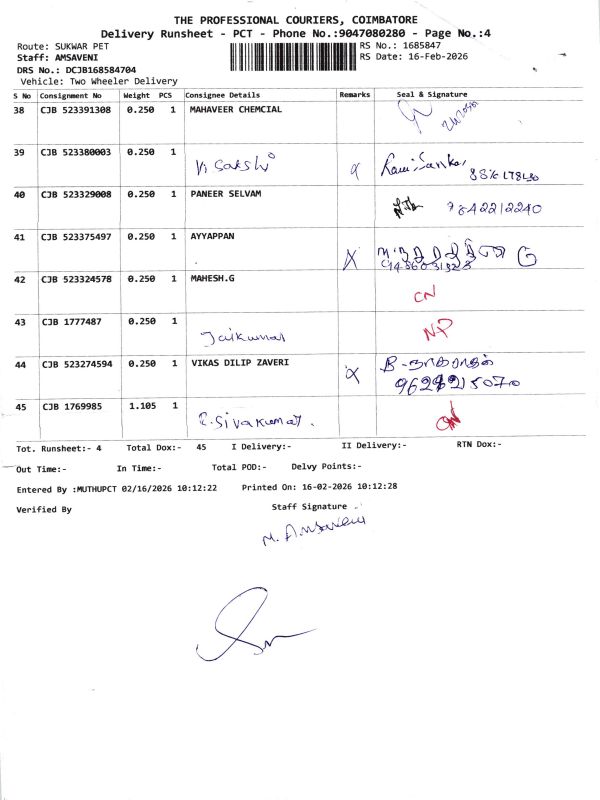 THE PROFESSIONAL COURIERS, COIMBATORE
Delivery Runsheet - PCT - Phone No.:9047080280 - Page No.:4
Route: SUKWAR PET
RS No.: 1685847
Staff: AMSAVENI
RS Date: 16-Feb-2026
DRS No.: DCJB168584704
Vehicle: Two Wheeler Delivery
S No Consignment No Weight PCS Consignee Details Remarks Seal & Signature
38 CJB 523391308 0.250 1 MAHAVEER CHEMCIAL
39 CJB 523380003 0.250 1
Sakshi
40 CJB 523329008 0.250 1 PANEER SELVAM
7842212240
41 CJB 523375497 0.250 1 AYYAPPAN
42 CJB 523324578 0.250 1 MAHESH.G
CN
43 CJB 1777487 0.250 1
Jaikumar
NP
44 CJB 523274594 0.250 1 VIKAS DILIP ZAVERI
45 CJB 1769985 1.105 1
R.Sivakumar.
Tot. Runsheet:- 4 Total Dox:- 45 I Delivery:- II Delivery:- RTN Dox:-
Out Time:- In Time:- Total POD:- Delvy Points:-
Entered By :MUTHUPCT 02/16/2026 10:12:22 Printed On: 16-02-2026 10:12:28
Verified By Staff Signature